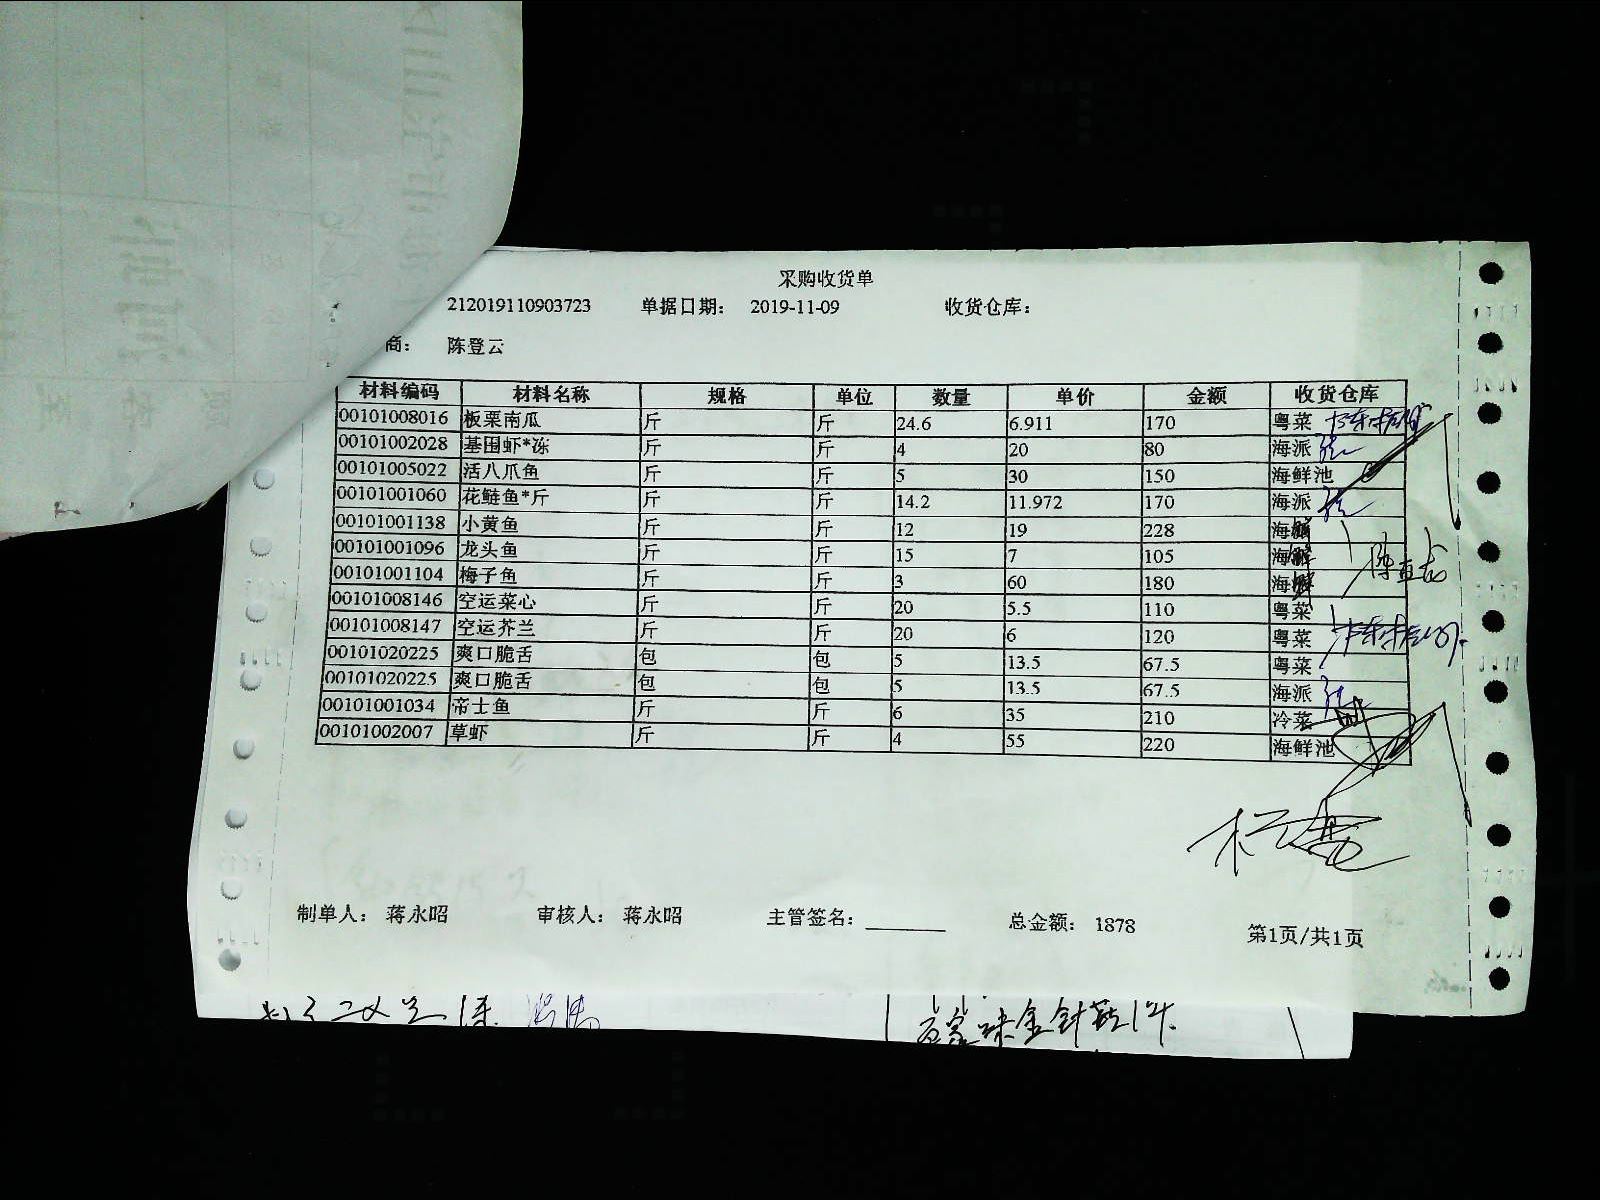 采购收货单
212019110903723 单据日期： 2019-11-09 收货仓库：
商： 陈登云
材料编码 材料名称 规格 单位 数量 单价 金额 收货仓库
00101008016 板栗南瓜 斤 斤 24.6 6.911 170 粤菜
00101002028 基围虾*冻 斤 斤 4 20 80 海派
00101005022 活八爪鱼 斤 斤 5 30 150 海鲜池
00101001060 花鲢鱼*斤 斤 斤 14.2 11.972 170 海派
00101001138 小黄鱼 斤 斤 12 19 228 海
00101001096 龙头鱼 斤 斤 15 7 105 海
00101001104 梅子鱼 斤 斤 3 60 180 海
00101008146 空运菜心 斤 斤 20 5.5 110 粤菜
00101008147 空运芥兰 斤 斤 20 6 120 粤菜
00101020225 爽口脆舌 包 包 5 13.5 67.5 粤菜
00101020225 爽口脆舌 包 包 5 13.5 67.5 海派
00101001034 帝士鱼 斤 斤 6 35 210 冷菜
00101002007 草虾 斤 斤 4 55 220 海鲜池
制单人： 蒋永昭 审核人： 蒋永昭 主管签名： 总金额： 1878
第1页/共1页
金针菇1件